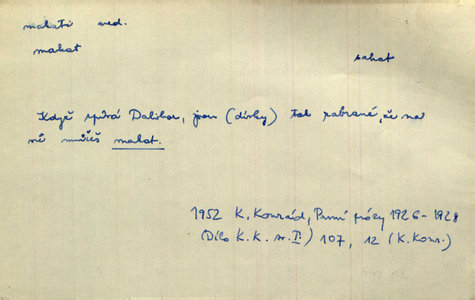 makati ned.
makat
sahat
Když zpívá Dalibor, jsou (dívky) tak zabrané, že na
ně můžeš makat.
1952 K. Konrád, První prózy 1926-1928
(Dílo K. K. sv. I.) 107, 12 (K. Konr.)